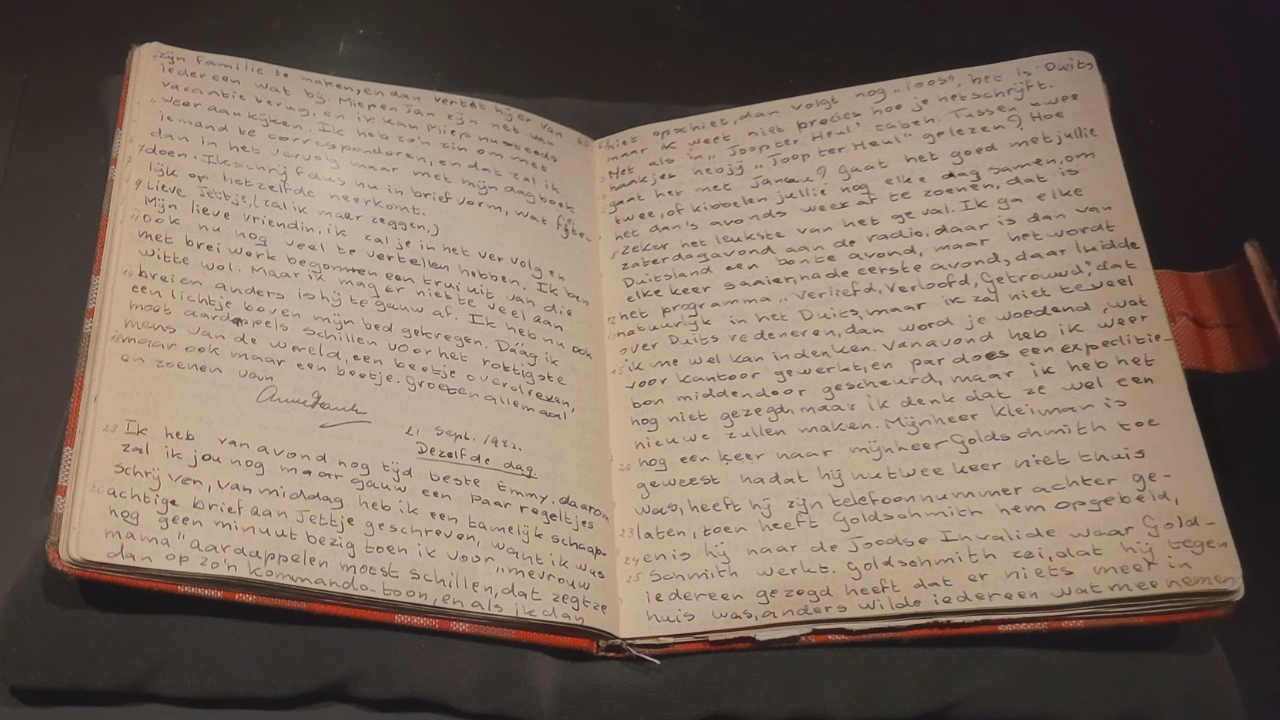 zijn familie te maken, en dan vertelt hij er van
iedereen wat bij. Miep en Jan zijn net van
vacantie terug, en ik kan Miep nu steeds
weer aankijken. Ik heb zo'n zin om met
iemand te corresponderen, en dat zal ik
dan in het vervolg maar met mijn dagboek
doen. Ik schrijf dus nu in briefvorm, wat feite-
lijk op hetzelfde neerkomt.
Lieve Jettje, (zal ik maar zeggen,)
Mijn lieve vriendin, ik zal je in het vervolg en
ook nu nog veel te vertellen hebben. Ik ben
met breiwerk begonnen een trui uit van die
witte wol. Maar ik mag er niet te veel aan
breien anders is hij te gauw af. Ik heb nu ook
een lichtje boven mijn bed gekregen. Dáág ik
moet aardappels schillen voor het rottigste
mens van de wereld, een beetje overdreven,
maar ook maar een beetje. Groeten allemaal
en zoenen van
Anne Frank
21 Sept. 1942.
Dezelfde dag.
Ik heb vanavond nog tijd beste Emmy, daarom
zal ik jou nog maar gauw een paar regeltjes
schrijven, vanmiddag heb ik een tamelijk schaap-
achtige brief aan Jettje geschreven, want ik was
nog geen minuut bezig toen ik voor „mevrouw
mama" aardappelen moest schillen, dat zegt ze
dan op zo'n kommando-toon, en als ik dan
niet opschiet, dan volgt nog „loos", het is Duits
maar ik weet niet precies hoe je het schrijft.
Net als in „Joop ter Heul". Tussen twee
haakjes heb jij „Joop ter Heul" gelezen? Hoe
gaat het met Gaat het goed met jullie
twee, of kibbelen jullie nog elke dag samen, om
het dan 's avonds weer af te zoenen, dat is
zeker het leukste van het geval. Ik ga elke
zaterdagavond aan de radio, daar is dan van
Duitsland een bonte avond, maar het wordt
elke keer saaier, na de eerste avond, daar luidde
het programma „Verliefd, Verloofd, Getrouwd," dat
natuurlijk in het Duits, maar ik zal niet te veel
over Duits redeneren, dan word je woedend, wat
ik me wel kan indenken. Vanavond heb ik weer
voor kantoor gewerkt, en pardoes een expeditie-
bon middendoor gescheurd, maar ik heb het
nog niet gezegd, maar ik denk dat ze wel een
nieuwe zullen maken. Mijnheer Kleiman is
nog een keer naar mijnheer Goldschmith toe
geweest nadat hij nu twee keer niet thuis
was, heeft hij zijn telefoonnummer achter ge-
laten, toen heeft Goldschmith hem opgebeld,
en is hij naar de Joodse Invalide waar Gold-
schmith werkt. Goldschmith zei, dat hij tegen
iedereen gezegd heeft dat er niets meer in
huis was, anders wilde iedereen wat meenemen